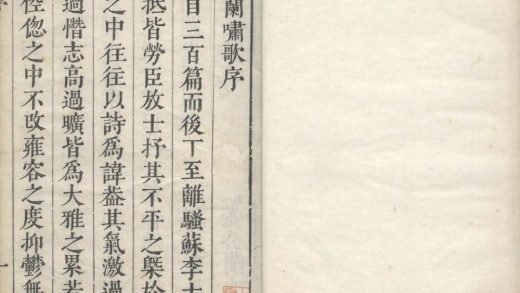 蘭嘯歌序
自三百篇而後丅至離騷蘇李十
抵皆勞臣放士抒其不平之槩於
之中往徃以詩爲諱葢其氣激過
過憯志高過曠皆爲大雅之累若
倥偬之中不改雍容之度抑鬱無